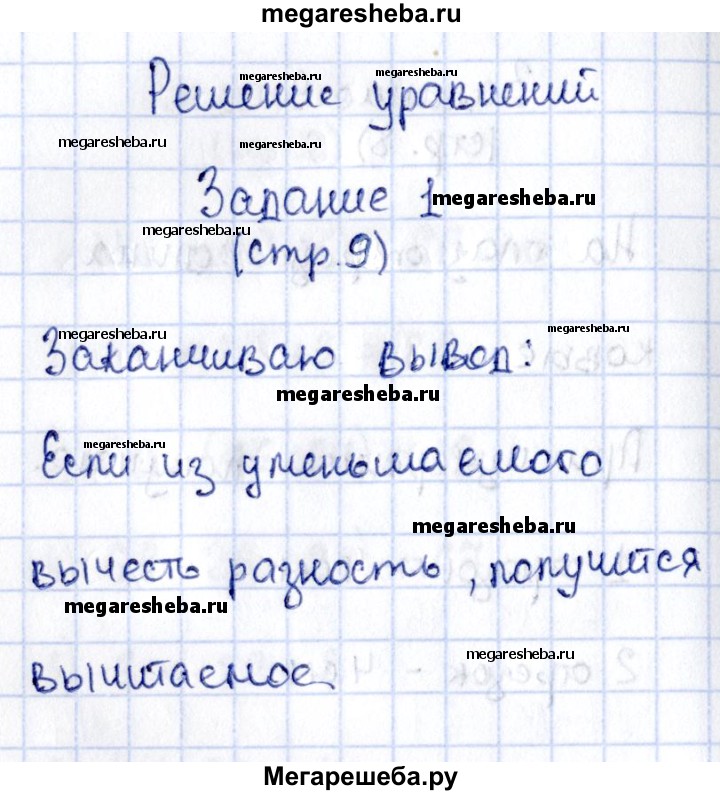 megaresheba.ru
megaresheba.ru megaresheba.ru
Решение уравнений
megaresheba.ru megaresheba.ru
Задание 1 megaresheba.ru
megaresheba.ru
(стр. 9)
megaresheba.ru megaresheba.ru
Заканчиваю вывод:
megaresheba.ru
megaresheba.ru
Если из уменьшаемого
megaresheba.ru
вычесть разность, получится
megaresheba.ru
megaresheba.ru
вычитаемое.
Мегарешеба.ру